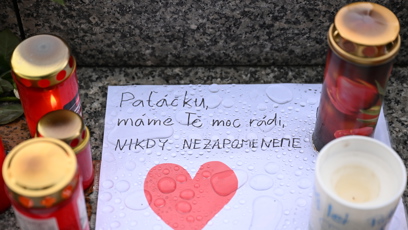 Paťáčku,
máme Tě moc rádi,
NIKDY NEZAPOMENEME